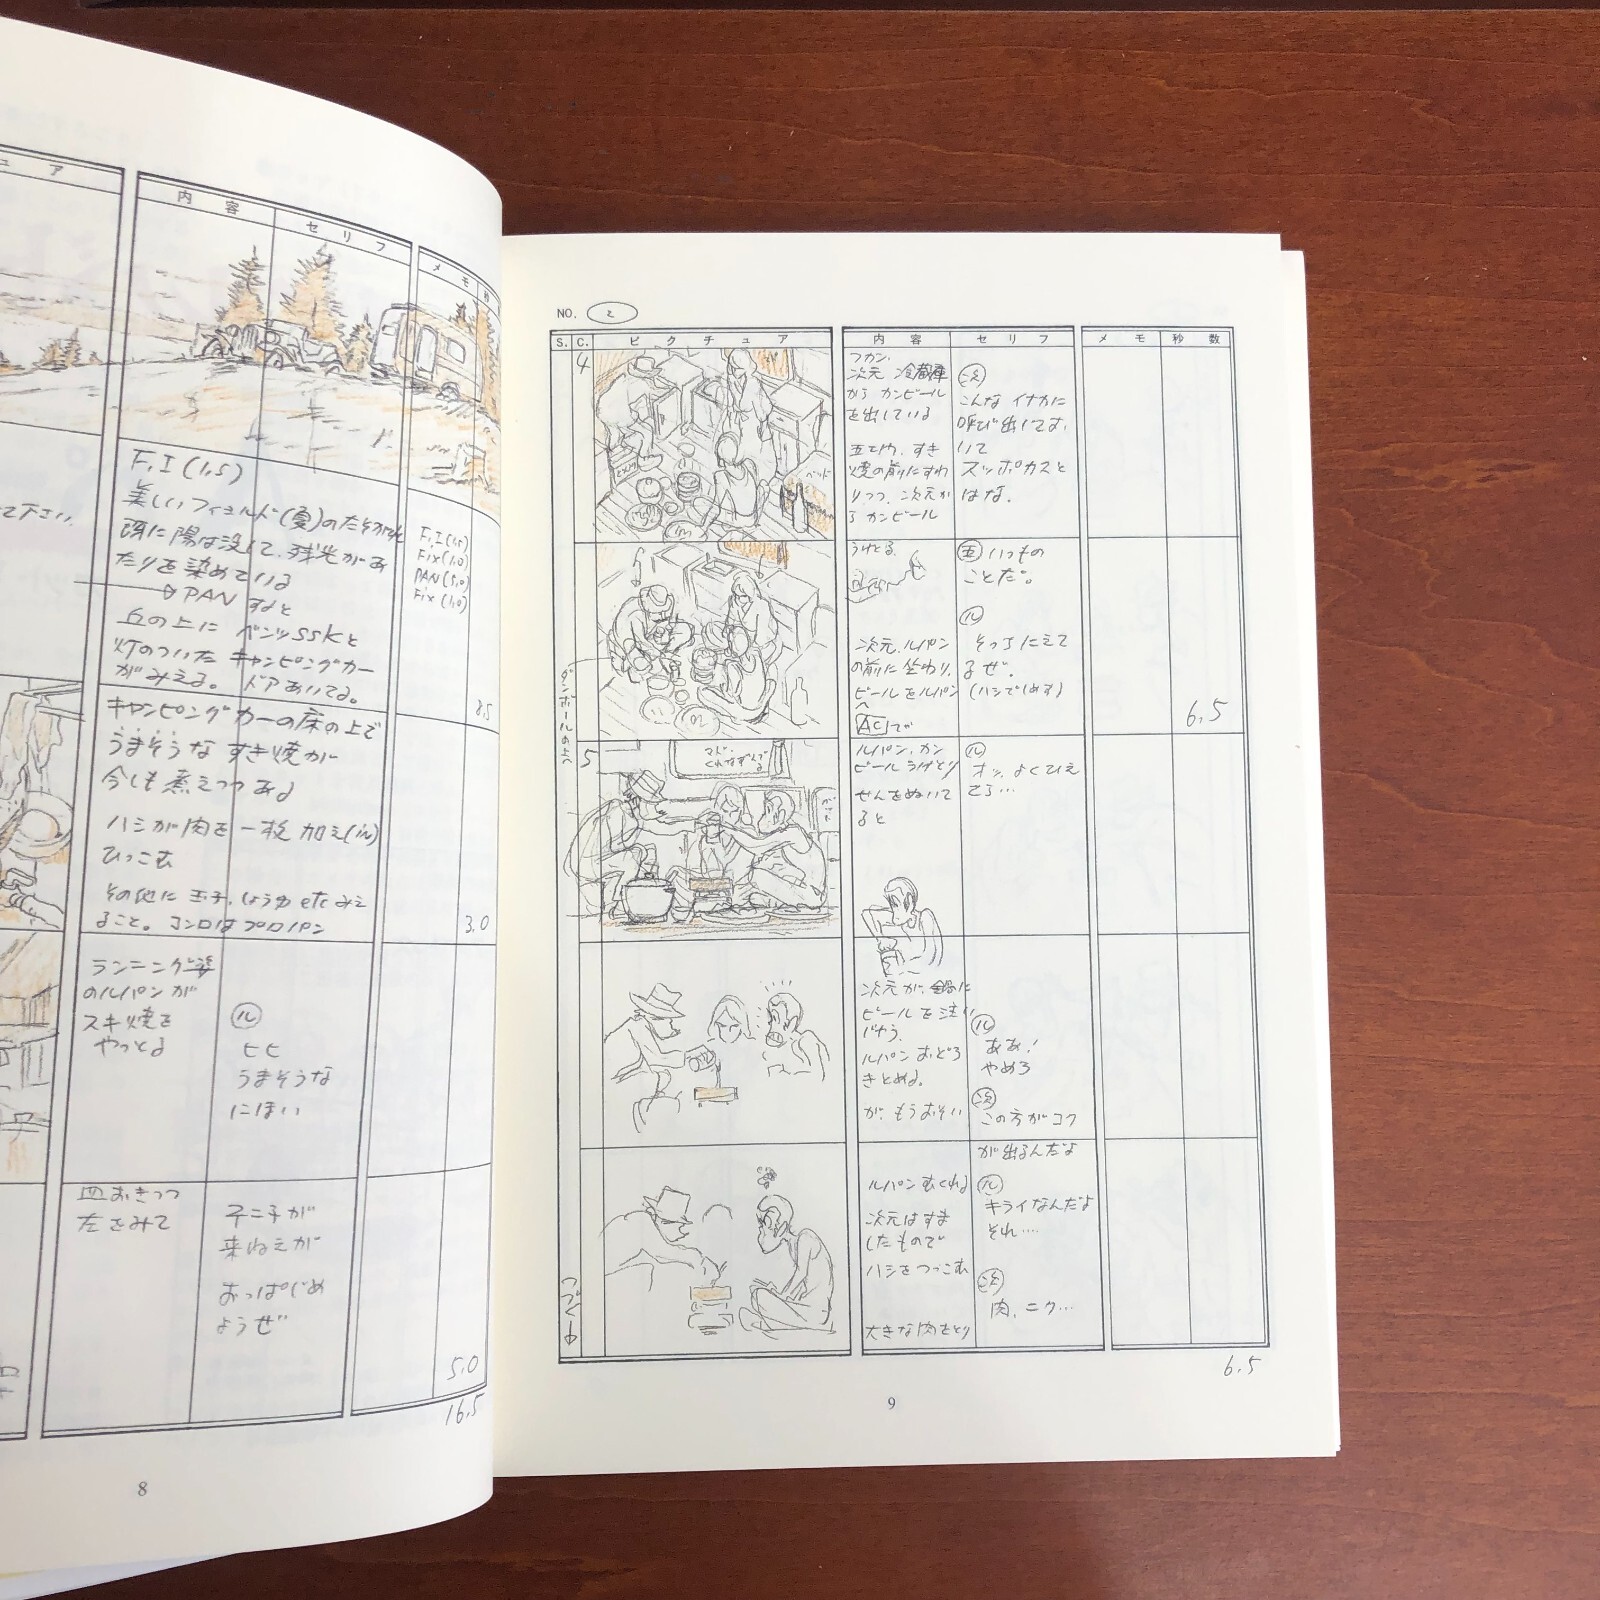 ュ ア
内 容
セ リ フ
メ モ
秒
て下さい。
F.I(1.5)
美しいフィールド(夏)のたそがれ
既に陽は没して、残光があ
たりを染めている
PAN すると
丘の上に ベンツSSKと
灯のついた キャンピングカー
がみえる。 ドアあいてる。
F.I(1.5)
Fix(1.0)
PAN(5.0)
Fix(1.0)
8.5
キャンピングカーの床の上で
うまそうな すき焼が
今しも煮えつつある
ハシが肉を一枚 加え(in)
ひっこむ
その他に 玉子、しょうゆ etc みえ
ること。コンロはプロパン
3.0
ランニング姿
のルパンが
スキ焼を
やっとる
ル
ヒヒ
うまそうな
にほい
皿おきつつ
左をみて
不二子が
来ねえが
おっぱじめ
ようぜ
5.0
16.5
8
NO. 2
S. C. ピ ク チ ュ ア
内 容
セ リ フ
メ モ
秒 数
4
フカン。
次元 冷蔵庫
から カンビール
を出している
五エ門、すき
焼の前にすわ
りつつ、次元か
ら カンビール
次
こんな イナカに
呼び出してよ、
いて
スッポカスと
はな。
ベッド
うけとる。
五 いつもの
ことだ。
ル
そっちにえて
るぜ。
(ハシでしめす)
次元、ルパン
の前に坐わり、
ビールをルパン
へ
ACでか
6.5
ダンボールの上へ
5
マド。
くれなずんで
る
ルパン、カン
ビールうけとり
せんをぬいて
ると
ル
オッ、よくひえ
てら…
次元が、鍋に
ビールを注い
じゃう。
ルパン おどろ
きとめる。
が、もうおそい
ル
ああ!
やめろ
次
この方がコク
が出るんだよ
ルパンむくれる
次元はすま
したもので
ハシをつっこむ
大きな肉をとり
ル
キライなんだよ
それ…
次
肉、ニク…
つづく
6.5
9